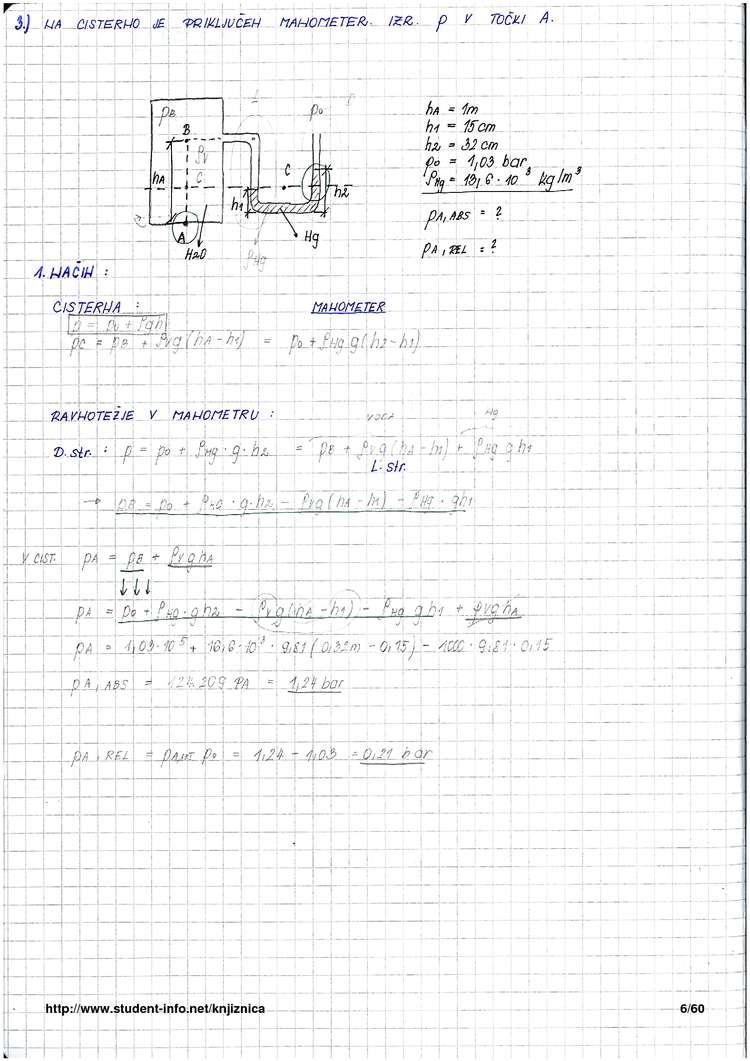 3.) NA CISTERNO JE PRIKLJUČEN MANOMETER. IZR. p V TOČKI A.
pB
B
ρv
hA
C
h1
A
H2O
p0
C
h2
Hg
ρHg
hA = 1m
h1 = 15 cm
h2 = 32 cm
p0 = 1,03 bar
ρHg = 13,6 · 10³ kg/m³
pA, ABS = ?
pA, REL = ?
1. NAČIN :
CISTERNA :
MANOMETER
p = p0 + ρgh
pC = pB + ρVg(hA - h1) = p0 + ρHg g(h2 - h1)
RAVNOTEŽJE V MANOMETRU :
VODA
Hg
D. str. : p = p0 + ρHg · g · h2 = pB + ρVg(hA - h1) + ρHg g h1
L. str.
→ pB = p0 + ρHg · g · h2 - ρVg(hA - h1) - ρHg · gh1
V CIST. pA = pB + ρVghA
↓↓↓
pA = p0 + ρHg · gh2 - ρVg(hA - h1) - ρHg gh1 + ρVghA
pA = 1,03 · 10⁵ + 16,6 · 10³ · 9,81 (0,32m - 0,15) - 1000 · 9,81 · 0,15
pA, ABS = 124.209 PA = 1,24 bar
pA, REL = p0 = 1,24 - 1,03 = 0,21 bar
http://www.student-info.net/knjiznica
6/60